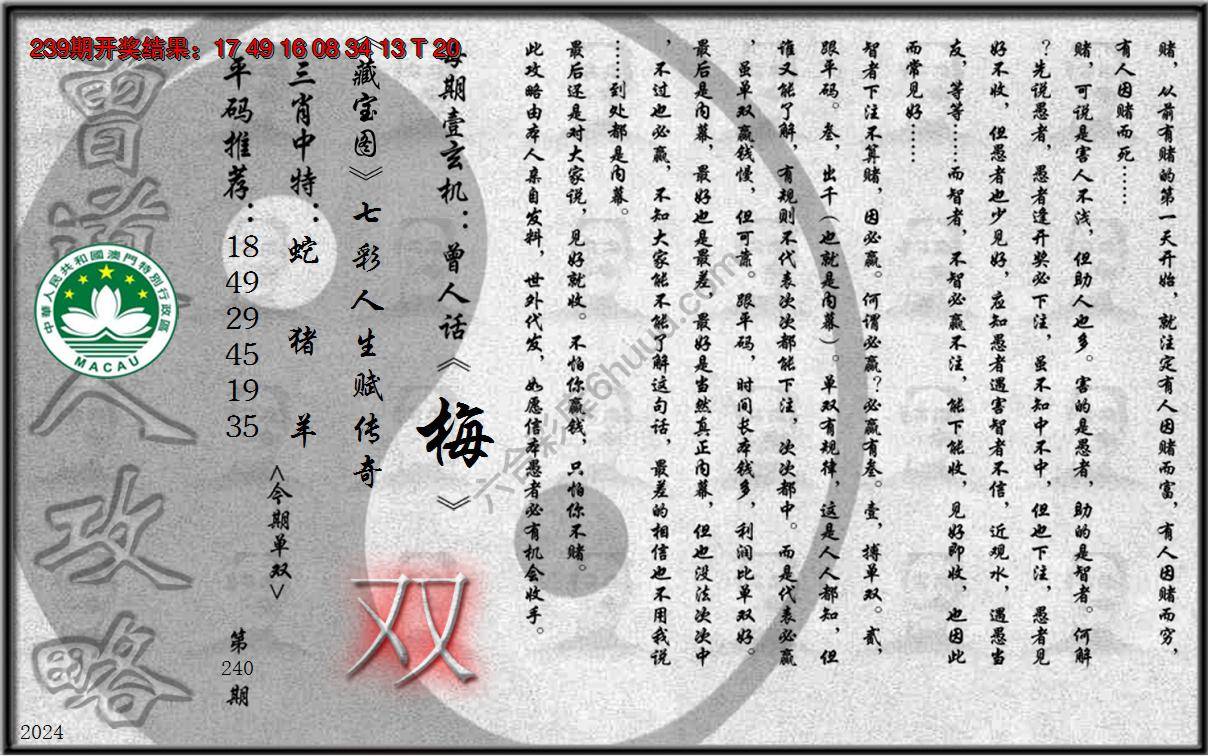 239期开奖结果：17 49 16 08 34 13 T 20
赌，从前有赌的第一天开始，就注定有人因赌而富，有人因赌而穷，
有人因赌而死……
赌，可说是害人不浅，但助人也多。害的是愚者，助的是智者。何解
？先说愚者，愚者逢开奖必下注，虽不知中不中，但也下注，愚者见
好不收，但愚者也少见好，应知愚者遇害智者不信，近观水，遇愚当
友，等等……而智者，不智必赢不注，能下能收，见好即收，也因此
而常见好……
智者下注不算赌，因必赢。何谓必赢？必赢有叁。壹，搏单双。贰，
跟平码。叁，出千（也就是内幕）。单双有规律，这是人人都知，但
谁又能了解，有规则不代表次次都能下注，次次都中。而是代表必赢
，虽单双赢钱慢，但可靠。跟平码，时间长本钱多，利润比单双好。
最后是内幕，最好也是最差，最好是当然真正内幕，但也没法次次中
，不过也必赢，不知大家能不能了解这句话，最差的相信也不用我说
……到处都是内幕。
最后还是对大家说，见好就收。不怕你赢钱，只怕你不赌。
此攻略由本人亲自发料，世外代发，如愿信本愚者必有机会收手。
每期壹玄机：曾人话《梅》
《藏宝图》七彩人生赋传奇
双
三肖中特：蛇 猪 羊
<今期单双>
平码推荐：18 49 29 45 19 35
第240期
曾道人攻略
中華人民共和國澳門特別行政區
MACAU
2024